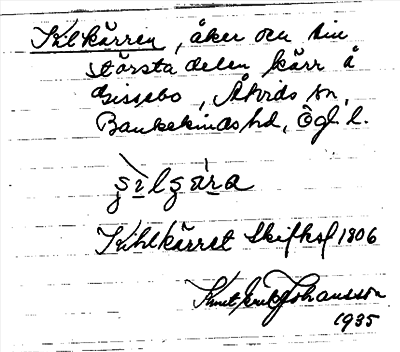 Kilkärren, åker och till
största delen kärr å
Gissebo, Åtvids sn,
Bankekinds hd, Ögl l.
Kihlkärret Skifteskf 1806
Knut Erik Johansson
1935